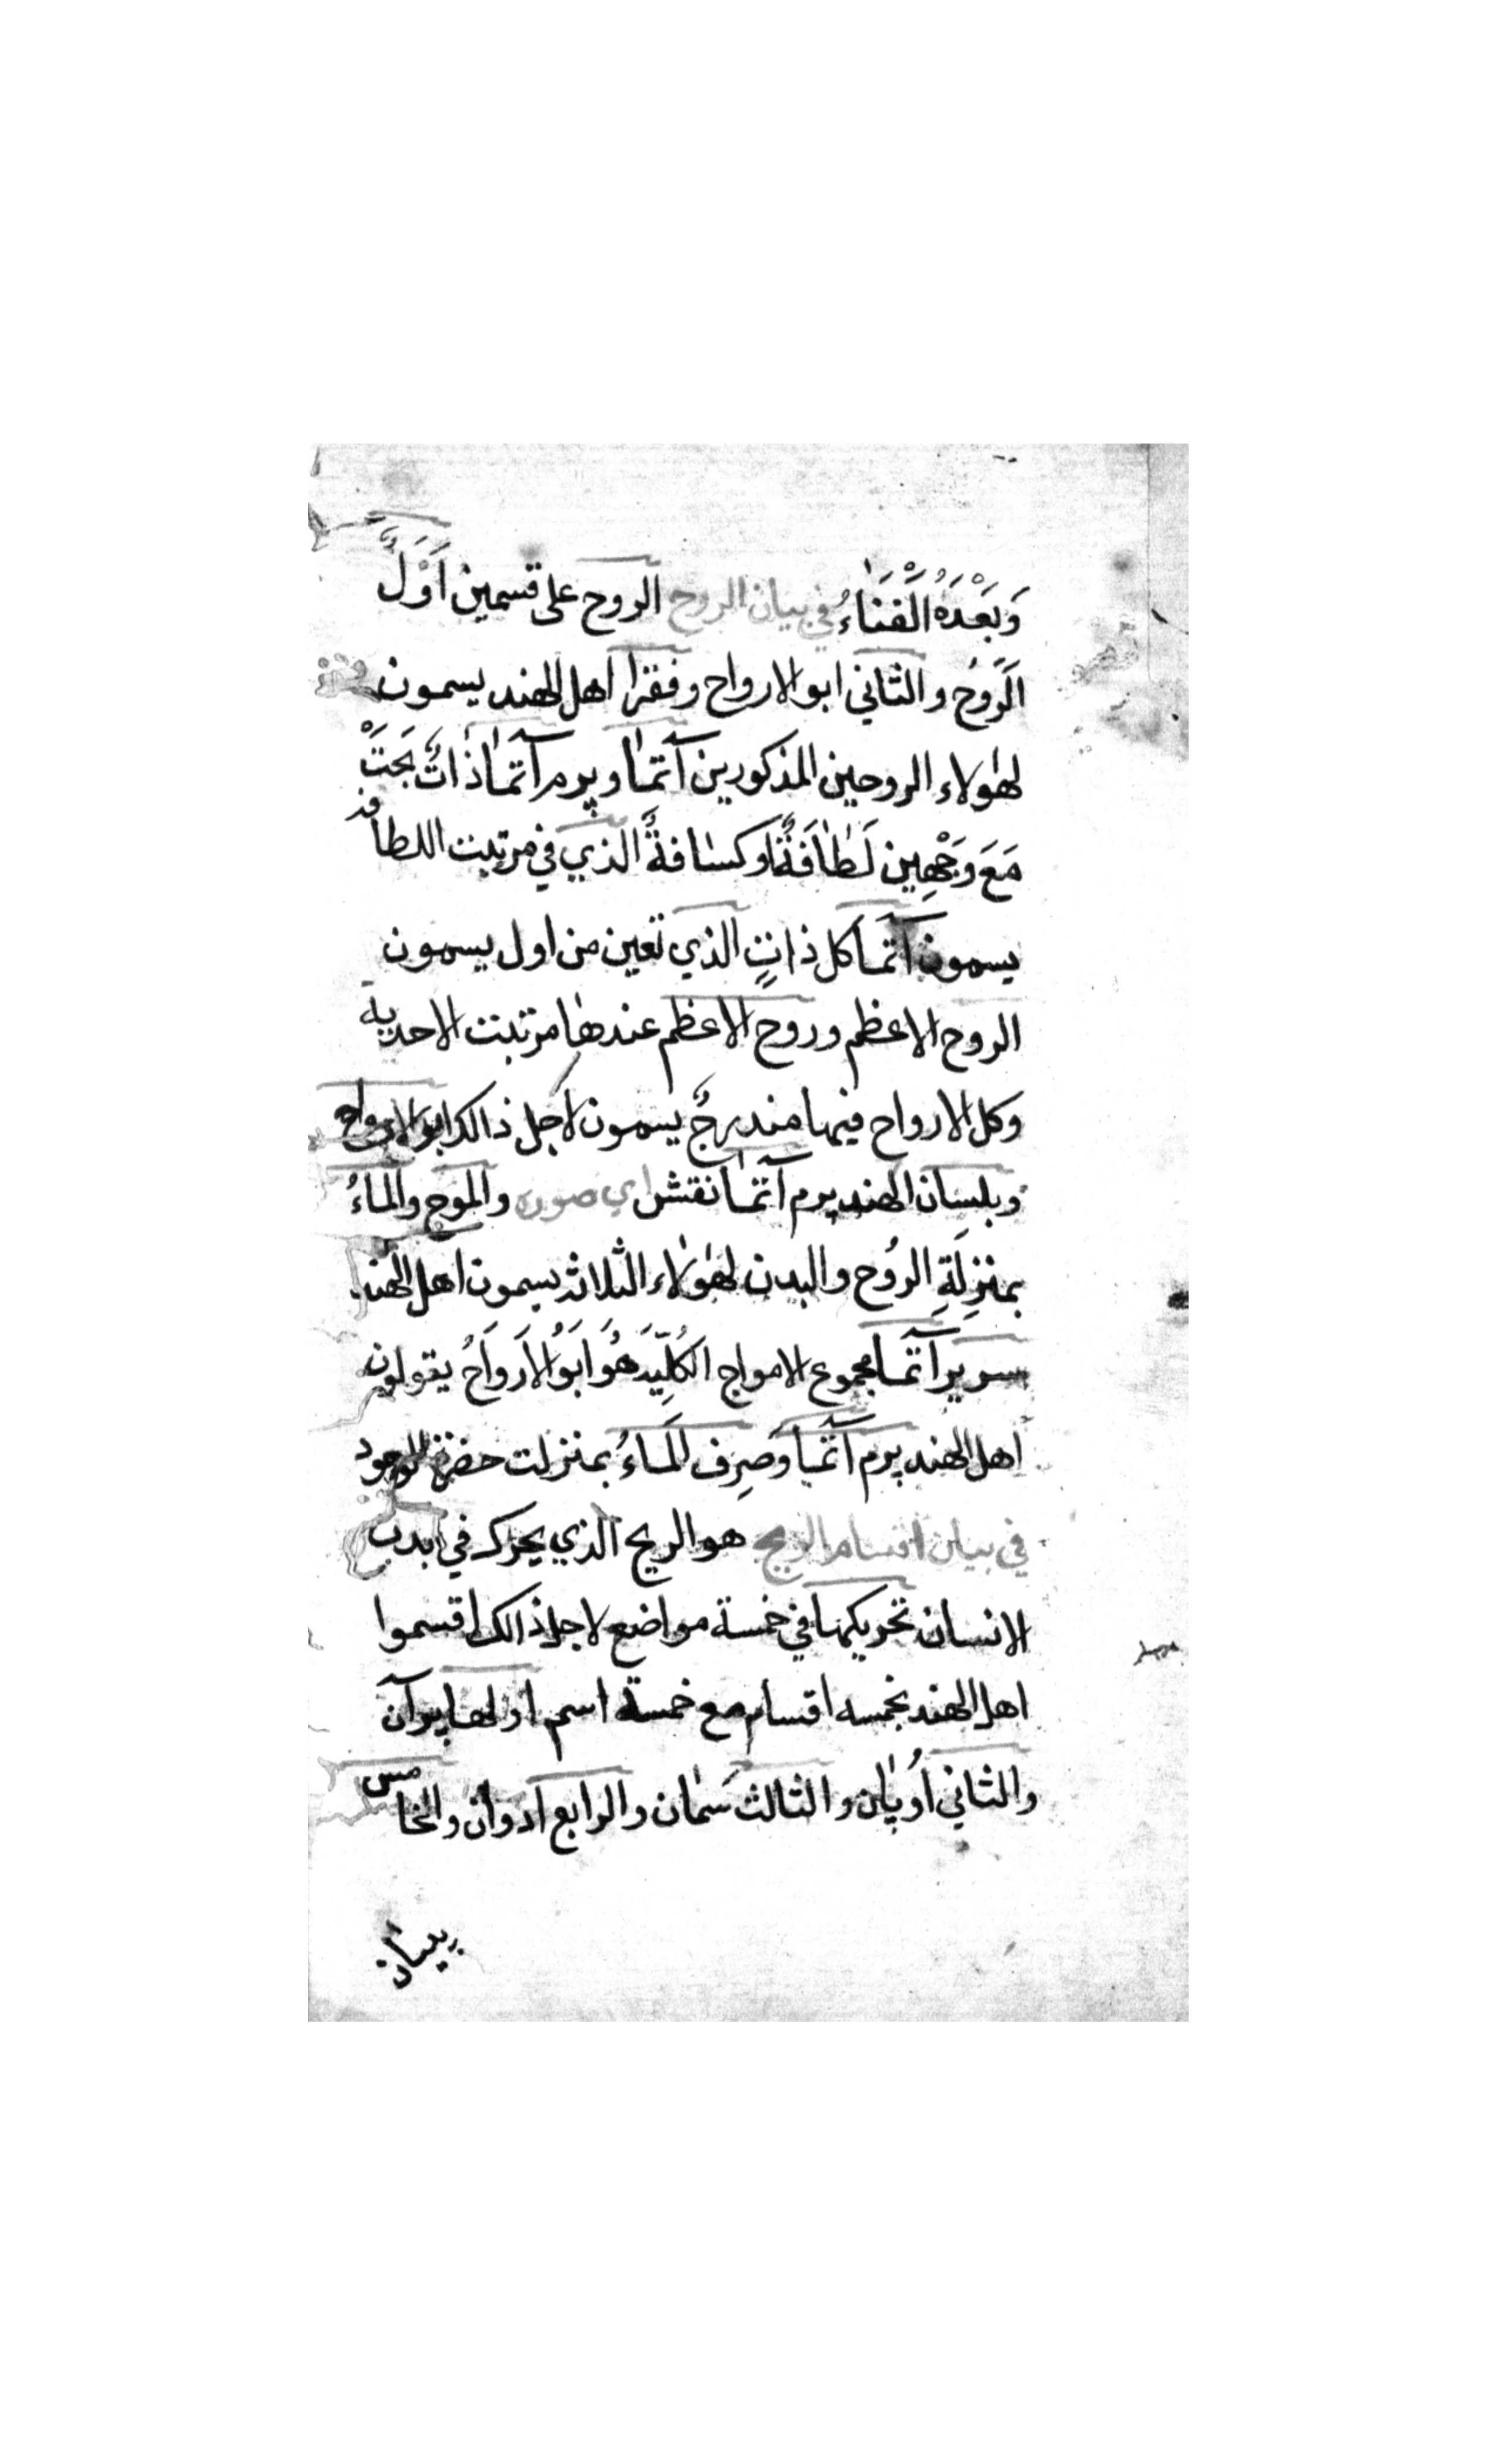 وَبَعْدَهُ الْفَنَاءُ في بيان الروح الروح على قسمين اَوَّلُ
الرُوح والثاني ابو الارواح وفقرا اهل الهند يسمون
لهٰولاء الروحين المذكورين آتمٰا وپرم آتمٰا ذَاتٌ بَحَتَْ
مَعَ وَجْهِين لَطٰافَةٌ وكسٰافةٌ الذي في مرتبت اللطافة
يسمون آتمٰا كل ذاتٍ الذي تعين من اول يسمون
الروح الاعظم وروح الاعظم عندهٰا مرتبت الاحديه
وكل الارواح فيها مندرجٌ يسمون لاجل ذالك ابو الارواح
وبلسان الهند پرم آتمٰا نقش اي صوره والموج والماءُ
بمنزِلَةِ الرُوح والبدن لهٰولاء الثلاثه يسمون اهل الهند
سرير آتمٰا مجموع الامواج الكُلِّيَّه هُوَ اَبُو الاَروَاحُ يقولون
اهل الهند پرم آتمٰا وَصِرف المَاءُ بمنزلت حضرة الوجود
في بيان اقسام الريح هو الريح الذي يحرك في بدن
الانسان تحريكها في خمسة مواضع لاجل ذالك اقسموا
اهل الهند بخمسه اقسام مع خمسة اسم اولها پرآن
والثاني اُوپٰان والثالث سَمٰان والرابع ادوان والخامس
بيان